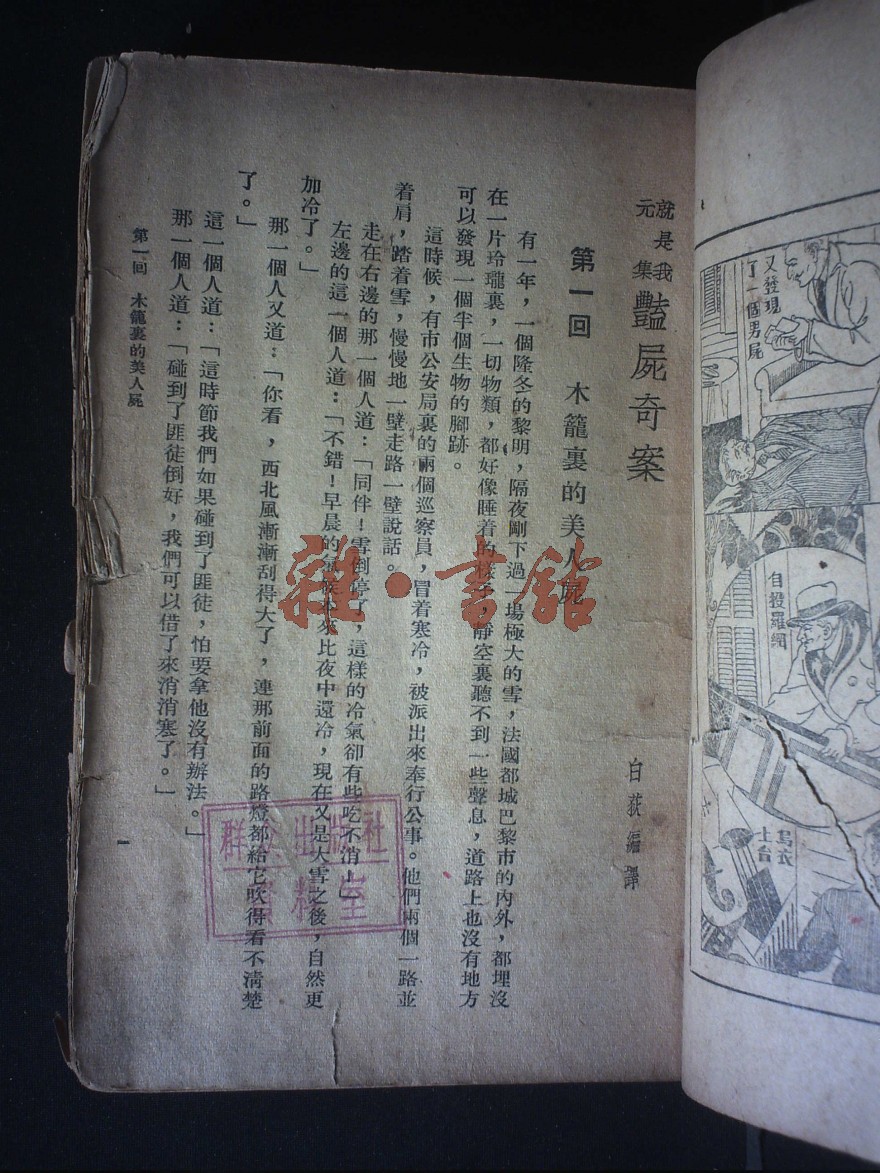 又發現
了一個男屍
自投羅網
烏衣
上台
就是我
元集
豔屍奇案
白荻編譯
第一回 木籠裏的美人屍
有一年，一個隆冬的黎明，隔夜剛下過一場極大的雪，法國都城巴黎市的內外，都埋沒
在一片玲瓏裏，一切物類，都好像睡着的樣子，靜空裏聽不到一些聲息，道路上也沒有地方
可以發現一個半個生物的腳跡。
這時候，有市公安局裏的兩個巡察員，冒着寒冷，被派出來奉行公事。他們兩個一路並
着肩，踏着雪，慢慢地一壁走路一壁說話。
走在右邊的那一個人道：「同伴！雪倒停了，這樣的冷氣卻有些吃不消！」
左邊的這一個人道：「不錯！早晨的氣候本來比夜中還冷，現在又是大雪之後，自然更
加冷了。」
那一個人又道：「你看，西北風漸漸刮得大了，連那前面的路燈都給它吹得看不清楚
了。」
這一個人道：「這時節我們如果碰到了匪徒，怕要拿他沒有辦法。」
那一個人道：「碰到了匪徒倒好，我們可以借了來消消寒了。」
第一回 木籠裏的美人屍
一
雜·書館
群众出版社
資料室